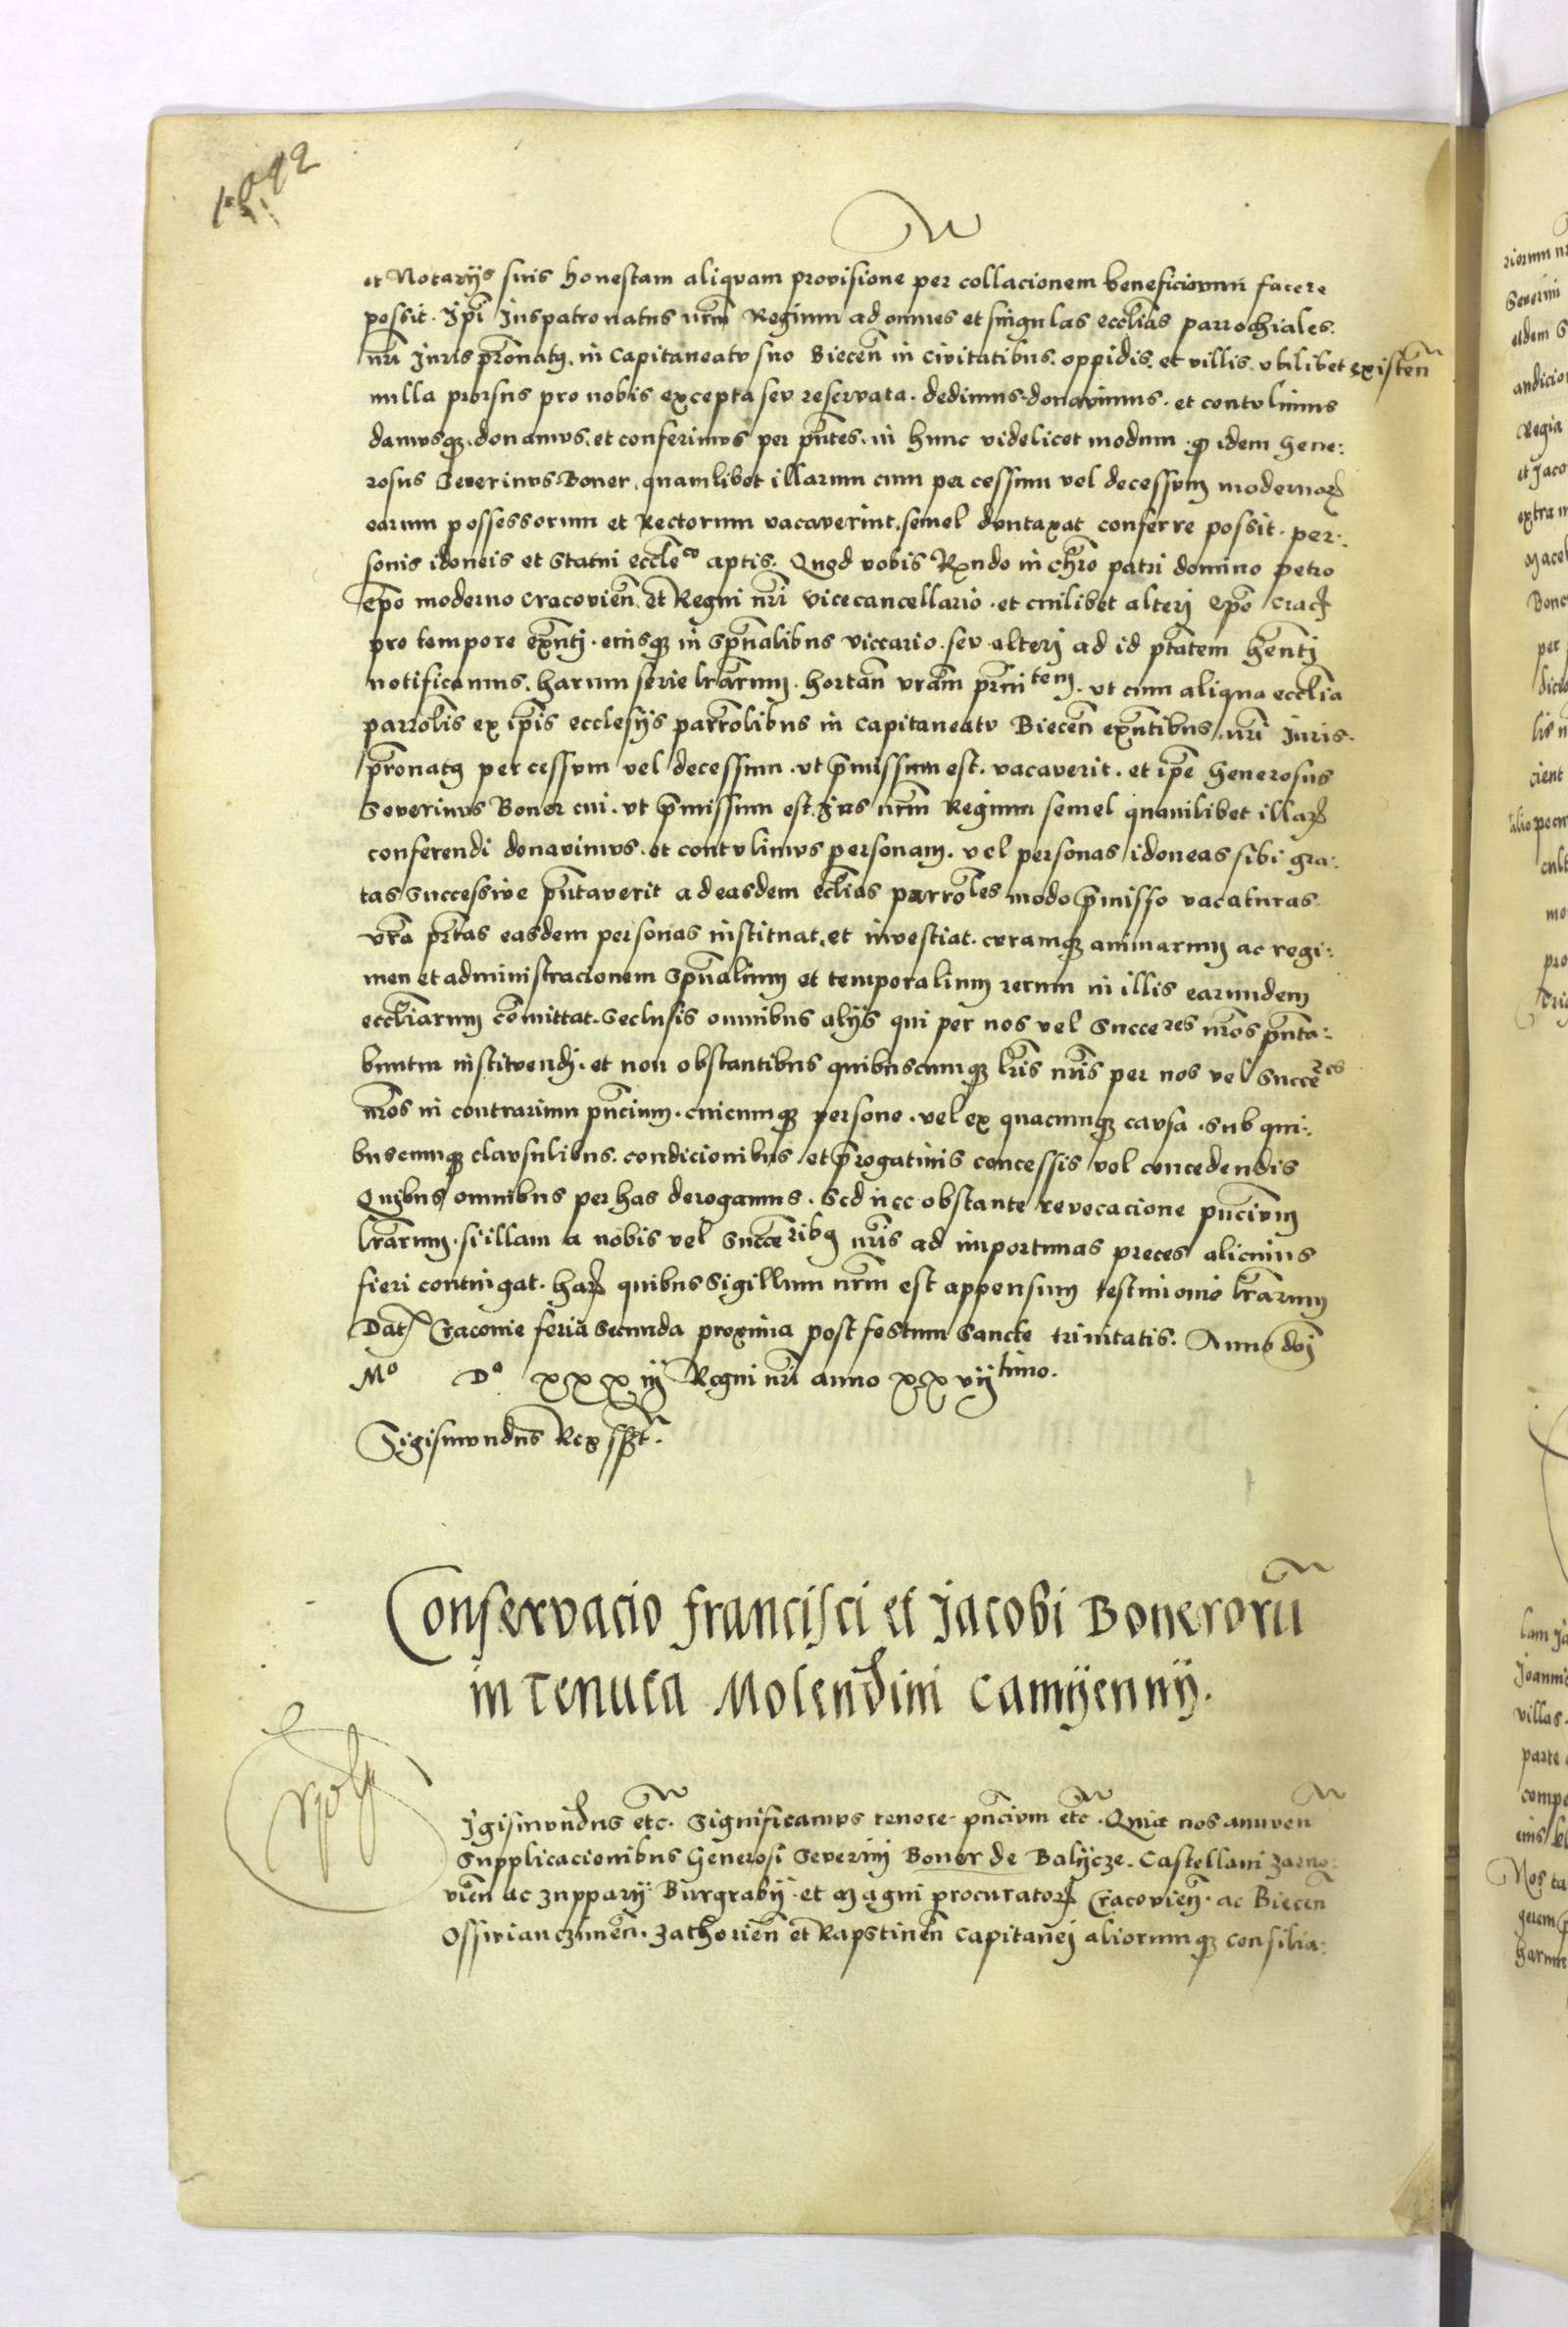 et Notarÿs suis honestam aliquam provisione per collacionem beneficiorum facere
possit. Ip̃i Juspatronatus nr̃m Regium ad omnes et singulas eccl̃ias parrochiales.
nr̃i Juris pr̃onatꝫ. in Capitaneatu suo Biecen̄ in Civitatibus. oppidis. et villis. vbilibet existen̄
nulla prorsus pro nobis excepta seu reservata. dedimus. donavimus. et contulimus
damusqꝫ. donamus. et conferimus per pn̄tes. in hunc videlicet modum. ꝙ idem Gene:
rosus Severinus Boner. quamlibet illarum cum per cessum vel decessum modernoꝝ
earum possessorum et Rectorum vacaverint. semel duntaxat conferre possit. per:
sonis idoneis et statui eccl̃eco aptis. Quod vobis Rx̃ndo in chr̃o patri domino petro
ep̃o moderno Cracovien̄. et Regni nr̃i vicecancellario. et cuilibet alteri Ep̃o Cracꝝ
pro tempore exn̄tj. eiusqꝫ in spūalibus viccario. seu alterj ad id ptãtem hn̄tj
notificamus. harum serie lrãrum. hortan̄ vrãm prñitem. vt cum aliqua eccl̃ia
parrol̃is ex ip̃is ecclesÿs parrol̃ibus in Capitaneatu Biecen̄ exn̄tibus. nr̃i Juris.
pr̃onatꝫ per cessum vel decessum. vt p̃missum est. vacaverit. et ip̃e Generosus
Severinus Boner cui. vt p̃missum est. Jus nr̃m Regium semel quamlibet illaꝝ
conferendi donavimus. et contulimus personam. vel personas idoneas sibi gra:
tas successive pn̄taverit ad easdem ecl̃ias parrol̃es modo p̃misso vacaturas
vrã pr̃tas easdem personas instituat. et investiat. curamqꝫ animarum ac regi:
men et administracionem spūalium et temporalium rerum in illis earundem
eccl̃iarum cõmittat. seclusis omnibus alÿs qui per nos vel succeres nr̃os pn̄ta:
buntur instituendj. et non obstantibus quibuscumqꝫ lr̃is nr̃is per nos vel succẽres
nr̃os in contrarium pn̄cium. cuicumqꝫ persone. vel ex quacumqꝫ causa. sub qui:
buscumqꝫ clausulibus. condicionibus et p̃rogativis concessis vel concedendis
Quibus omnibus per has derogamus. Sed nec obstante revocacione pn̄cium
lrãrum. si illam a nobis vel succeribꝫ nr̃is ad importunas preces alicuius
fieri contingat. haꝝ quibus Sigillum nr̃m est appensum testimonio lrãrum
Datꝫ Cracovie feria secunda proxima post festum Sancte trinitatis. Anno dn̄j
Mo Do xxxiij Regni nr̃i anno xxvijtimo.
Sigismundus Rex sszt.
Conservacio Francisci et Jacobi Bonerorū
in tenuta Molendini Camÿennÿ.
Igismundus etc̃. Significamus tenore pn̄cium etc̃. Quia nos annuen̄
Supplicacionibus Generosi Severini Boner de Balÿcze. Castellani Zarno:
vien̄ ac Zupparÿ. Burgrabÿ. et Magni procuratorꝝ Cracovien̄. ac Biecen̄
Osswianczimen̄. Zathorien̄ et Rapstinen̄ Capitanej aliorumqꝫ consilia: